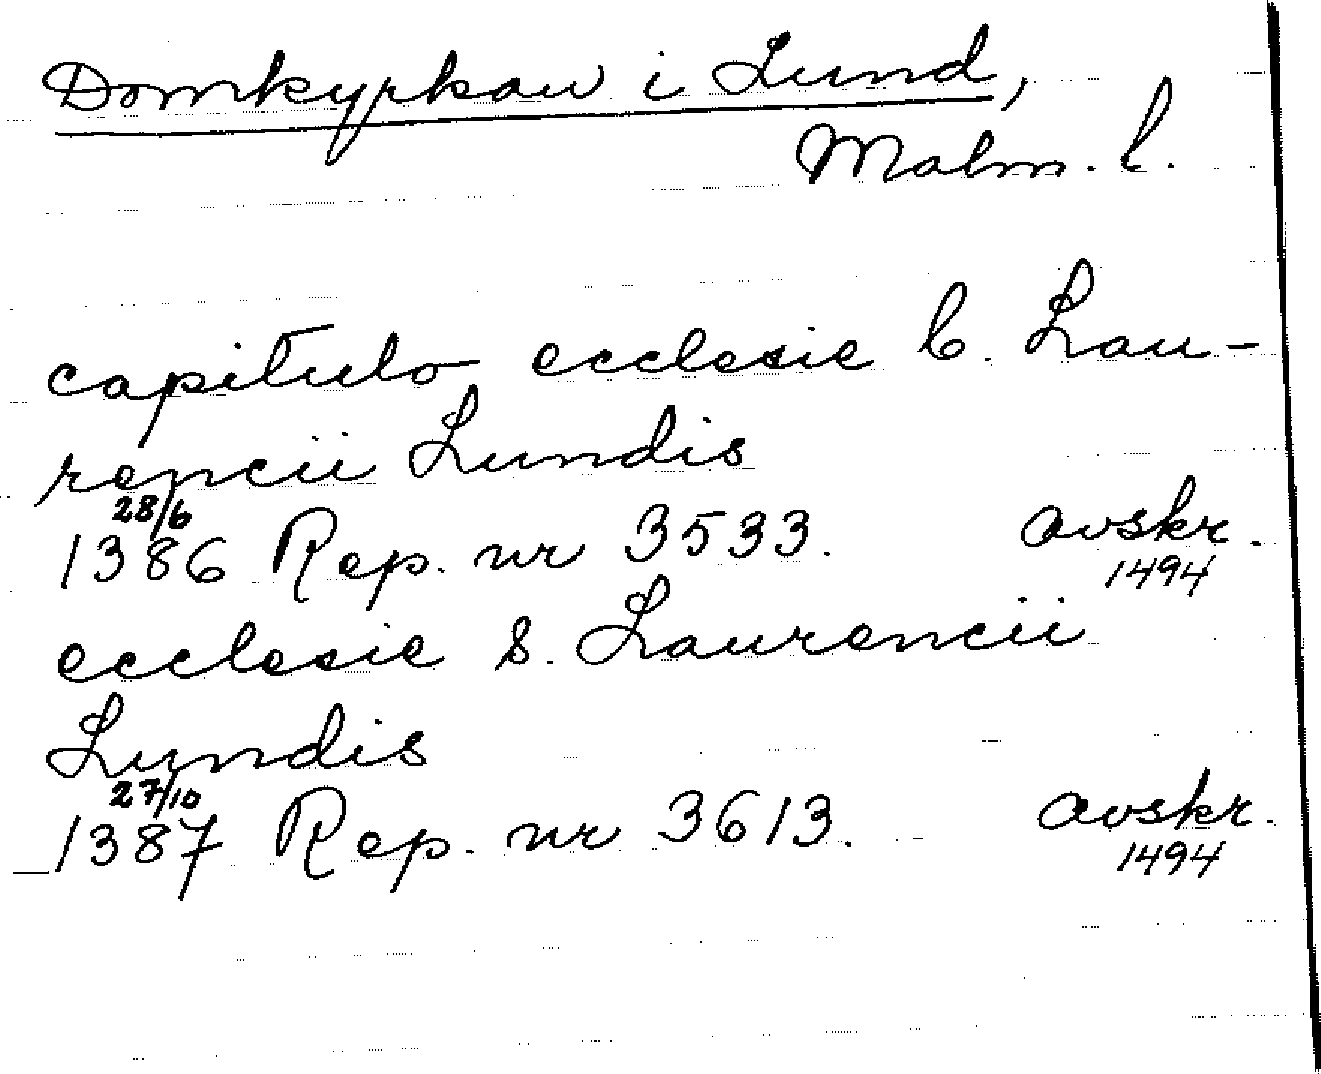 Domkyrkan i Lund,
Malm. l.
capitulo ecclesie b. Lau-
rencii Lundis
28/6
1386 Rep. nr 3533. avskr.
1494
ecclesie s. Laurencii
Lundis
27/10
1387 Rep. nr 3613. avskr.
1494